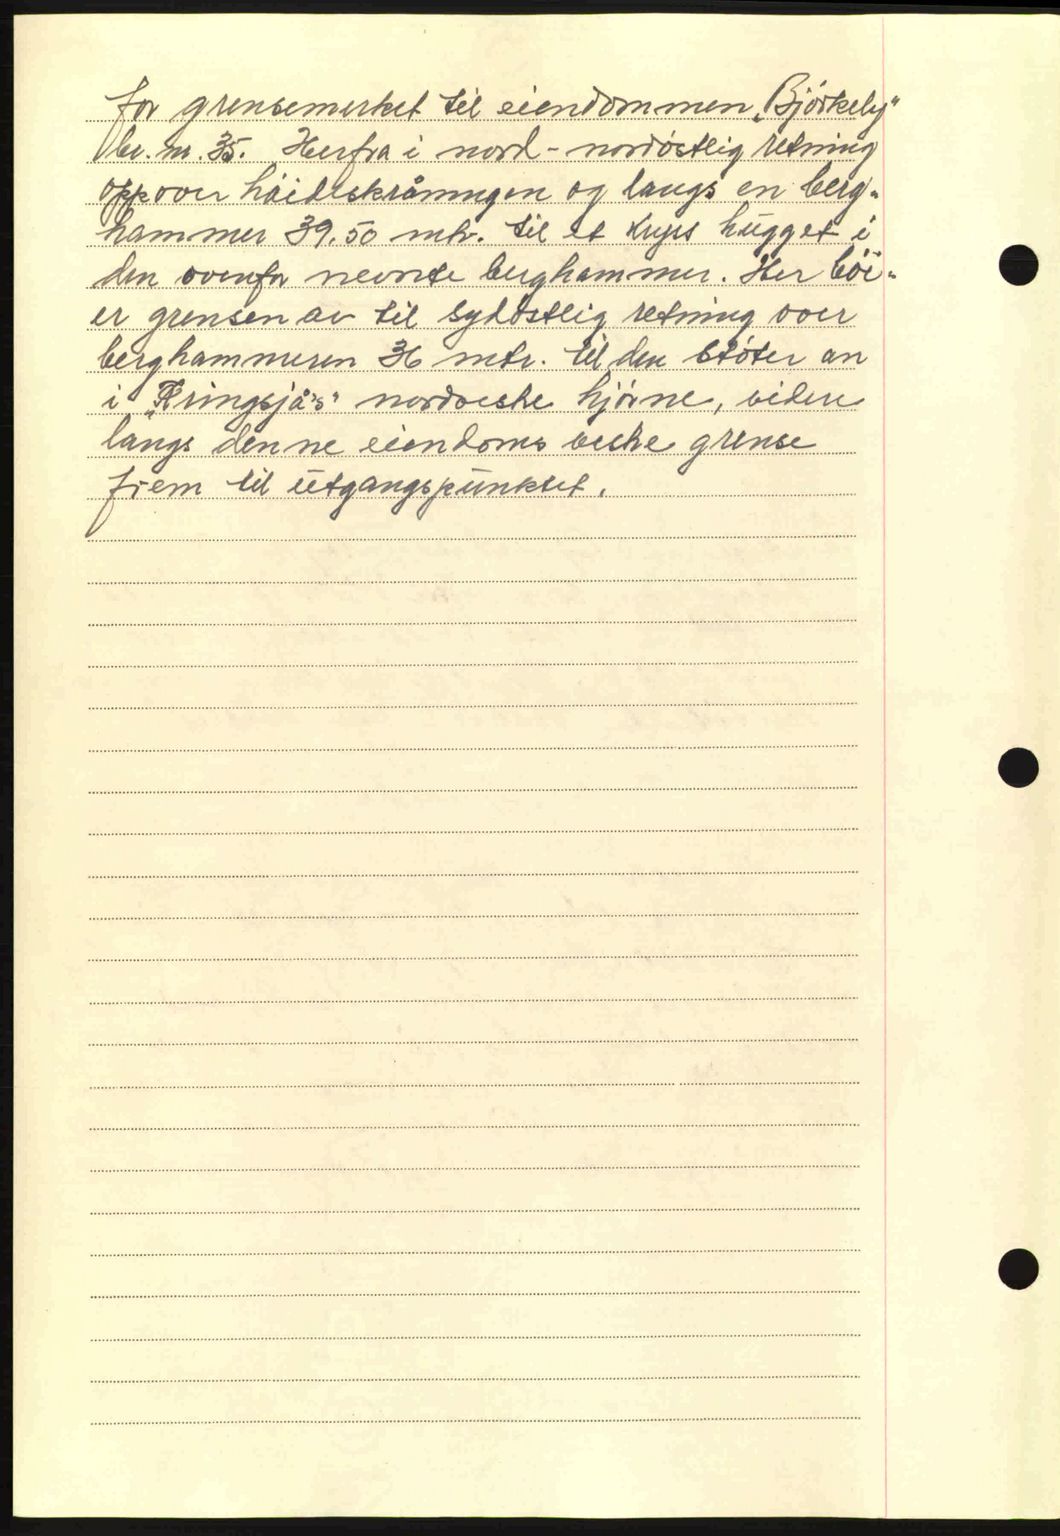 for grensemerket til eiendommen „Bjørkely"
br. nr. 35. Herfra i nord - nordøstlig retning
oppover høideskråningen og langs en berg-
hammer 39.50 mtr. til et kryss hugget i
den ovenfor nevnte berghammer. Her bøi-
er grensen av til sydøstlig retning over
berghammeren 36 mtr. til den støter an
i „Kringsjå's" nordveste hjørne, videre
langs denne eiendoms veste grense
frem til utgangspunktet.